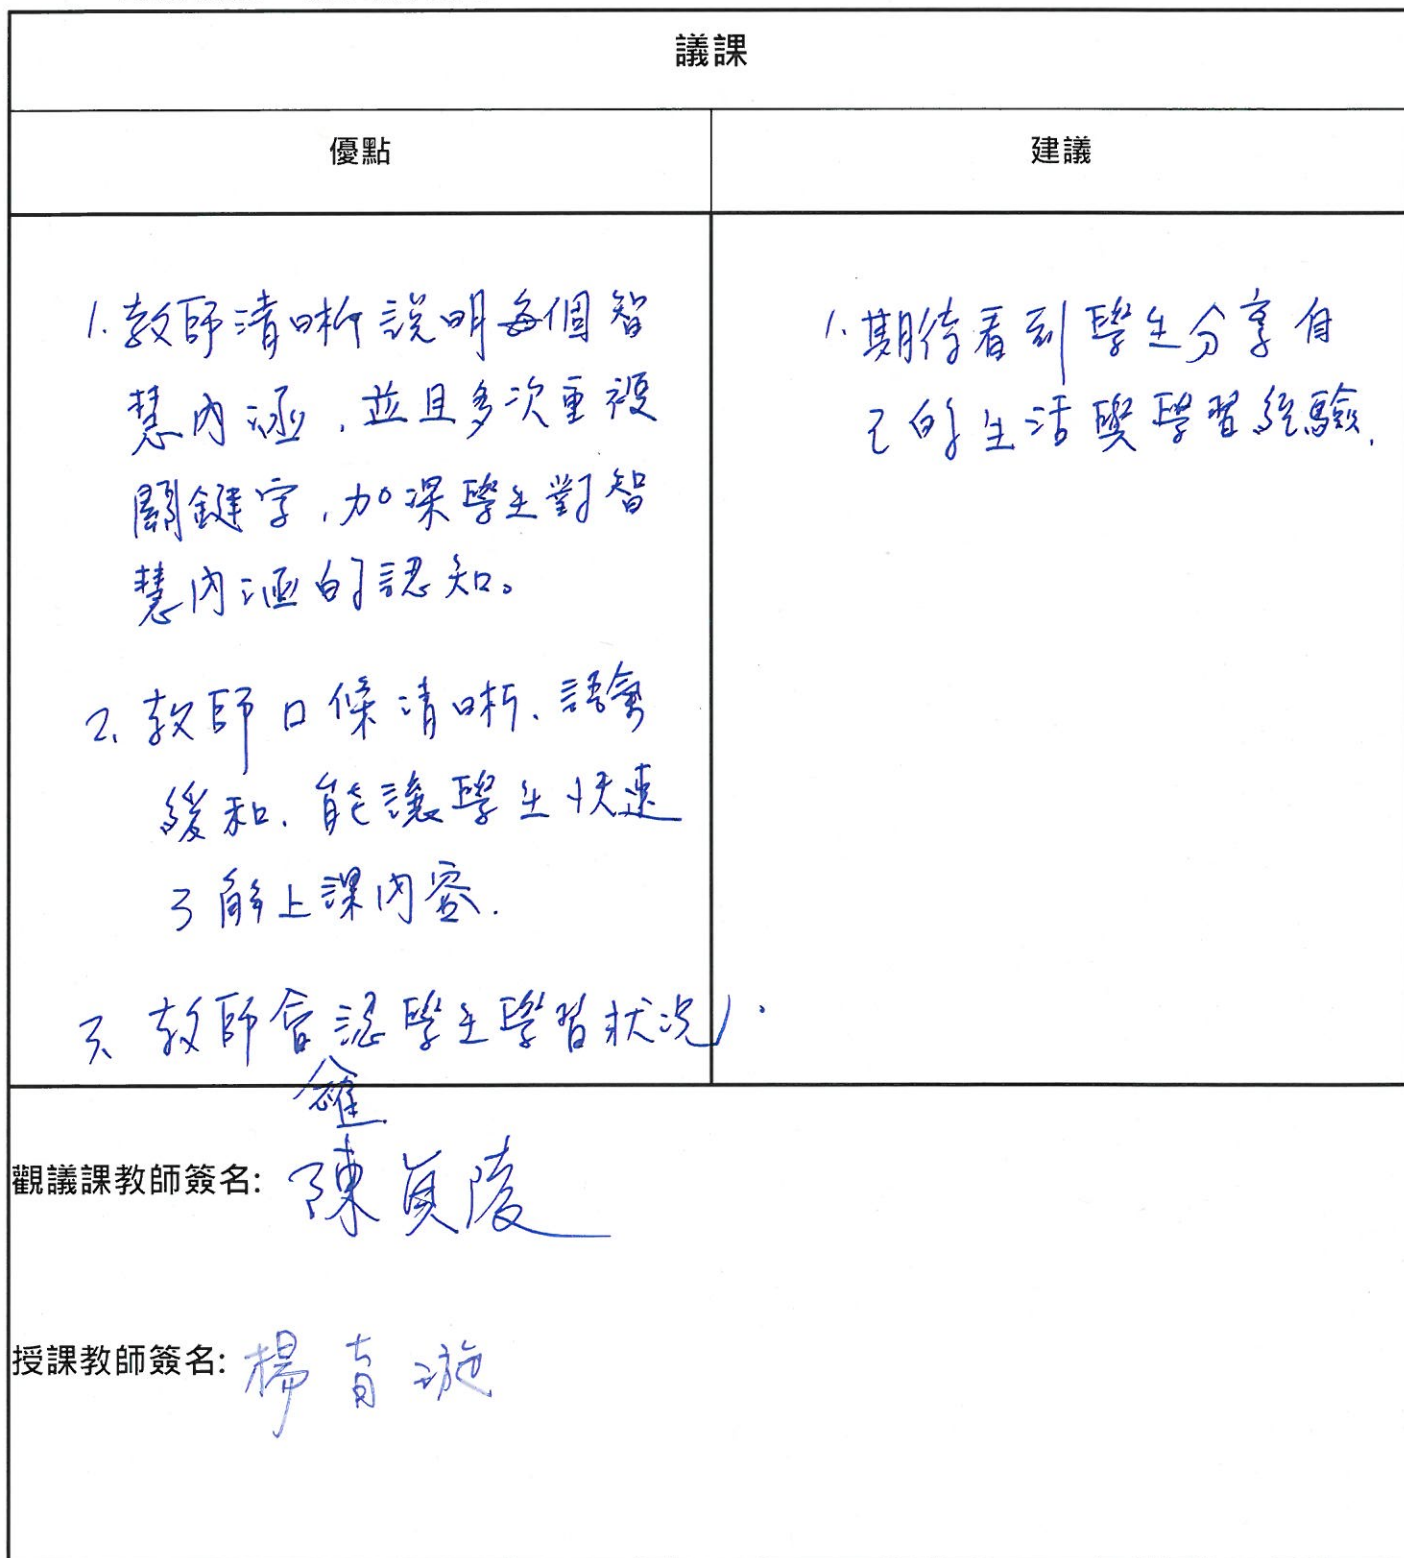 議課
優點
建議
1. 教師清晰說明每個智
慧內涵,並且多次重複
關鍵字,加深學生對智
慧內涵的認知。
2. 教師口條清晰、語氣
緩和、能讓學生快速
了解上課內容.
3. 教師會確認學生學習狀況.
1. 期待看到學生分享自
己的生活與學習經驗.
觀議課教師簽名: 陳貞陵
授課教師簽名: 楊育漩